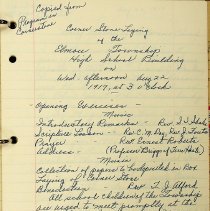 Copied from
Program in
Cornerstone
Corner Stone-Laying
of the
Elmore Township
High School Building
on
Wed afternoon Aug 22
1917, at 3 o'clock
Opening Exercises -
Music
Introductory Remarks - Rev. T. J.
Scripture Lesson - Rev. C. M. Day, Rev. J.
Prayer Rev. Ernest Roberts
Address - (Professor Briggs of
Music
Collection of papers to be deposited in Box
Laying of Corner Stone
Benediction Rev. T. J. Alford
All school children of the Township
are urged to meet promptly at the